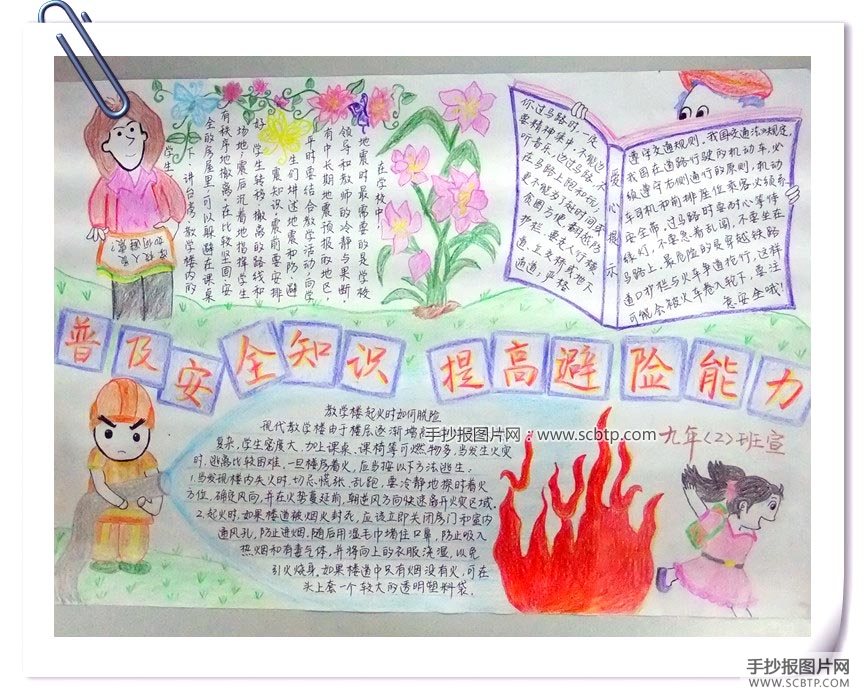 在学校中，
地震时最需要的是学校
领导和教师的冷静与果断
有中长期地震预报的地区，
平时要结合教学活动，向学
生们讲述地震和防、避
震知识。震前要安排
好学生转移、撤离的路线和
场地；震后沉着地指挥学生
有秩序地撤离。在比较坚固、安
全的房屋里，可以躲避在课桌
下、讲台旁，教学楼内的
学生
你过马路时，一定
要精神集中，不能边
听音乐，边过马路，不
在马路上跑和玩，
更不能为了赶时间或
贪图方便翻越防
护栏，要走人行横
道、立交桥或地下
通道，严格
爱心提示
遵守交通规则。我国交通法规规定，
我国在道路行驶的机动车，必
须遵守右侧通行的原则，机动
车司机和前排座位乘客必须系
安全带。过马路时要耐心等待
绿灯，不要急着乱闯，不要坐在
马路上，最危险的是穿越铁路
道口护栏与火车争道抢行，这样
可能会被火车卷入轮下，要注
意安全哦！
普及安全知识 提高避险能力
教学楼起火时如何脱险
现代教学楼由于楼层逐渐增
复杂，学生密度大，加上课桌、课椅等可燃物多，当发生火灾
时，逃离比较困难，一旦楼房着火，应当按以下方法逃生：
1.当发现楼内失火时，切忌慌张、乱跑，要冷静地探明着火
方位，确定风向，并在火势蔓延前，朝逆风方向快速离开火灾区域。
2.起火时，如果楼道被烟火封死，应该立即关闭房门和室内
通风孔，防止进烟，随后用湿毛巾堵住口鼻，防止吸入
热烟和有毒气体，并将向上的衣服浇湿，以免
引火烧身，如果楼道中只有烟没有火，可在
头上套一个较大的透明塑料袋。
九年（2）班宣
手抄报图片网：www.scbtp.com
手抄报图片网
WWW.SCBTP.COM